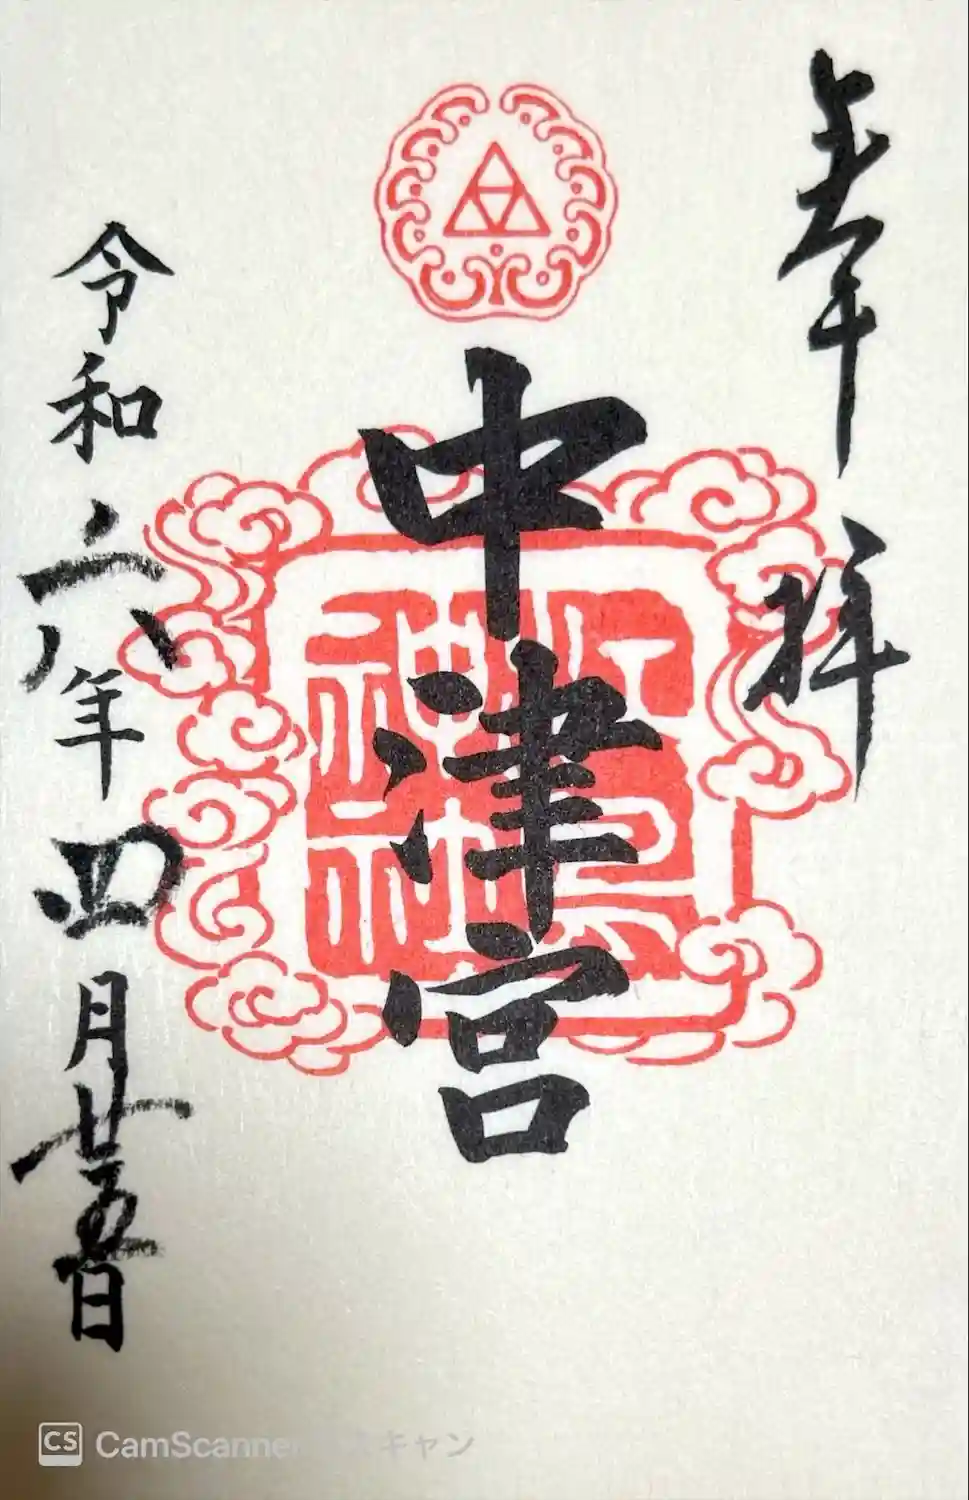 奉拝
中津宮
令和六年四月廿五日
CS CamScanner
キャン